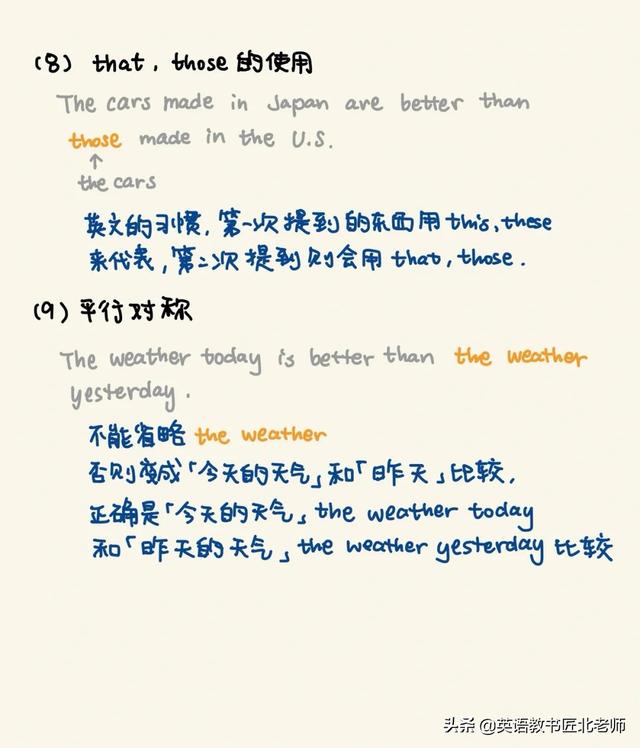 (8) that, those 的使用
The cars made in Japan are better than
those made in the U.S.
↑
the cars
英文的习惯,第一次提到的东西用this,these
来代表,第二次提到则会用that,those.
(9) 平行对称
The weather today is better than the weather
yesterday.
不能省略 the weather
否则变成「今天的天气」和「昨天」比较,
正确是「今天的天气」the weather today
和「昨天的天气」the weather yesterday 比较
头条 @英语教书匠北老师